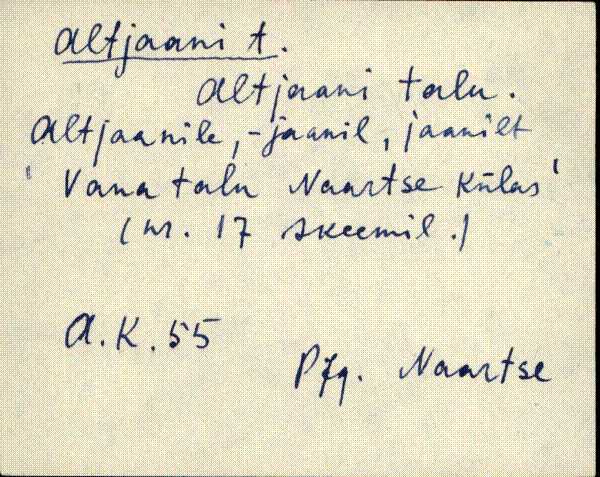 Altjaani t.
Altjaani talu.
Altjaanile, -jaanil, jaanilt
'Vana talu Naartse külas'
(nr. 17 skeemil.)
A.K. 55
Pfg. Naartse